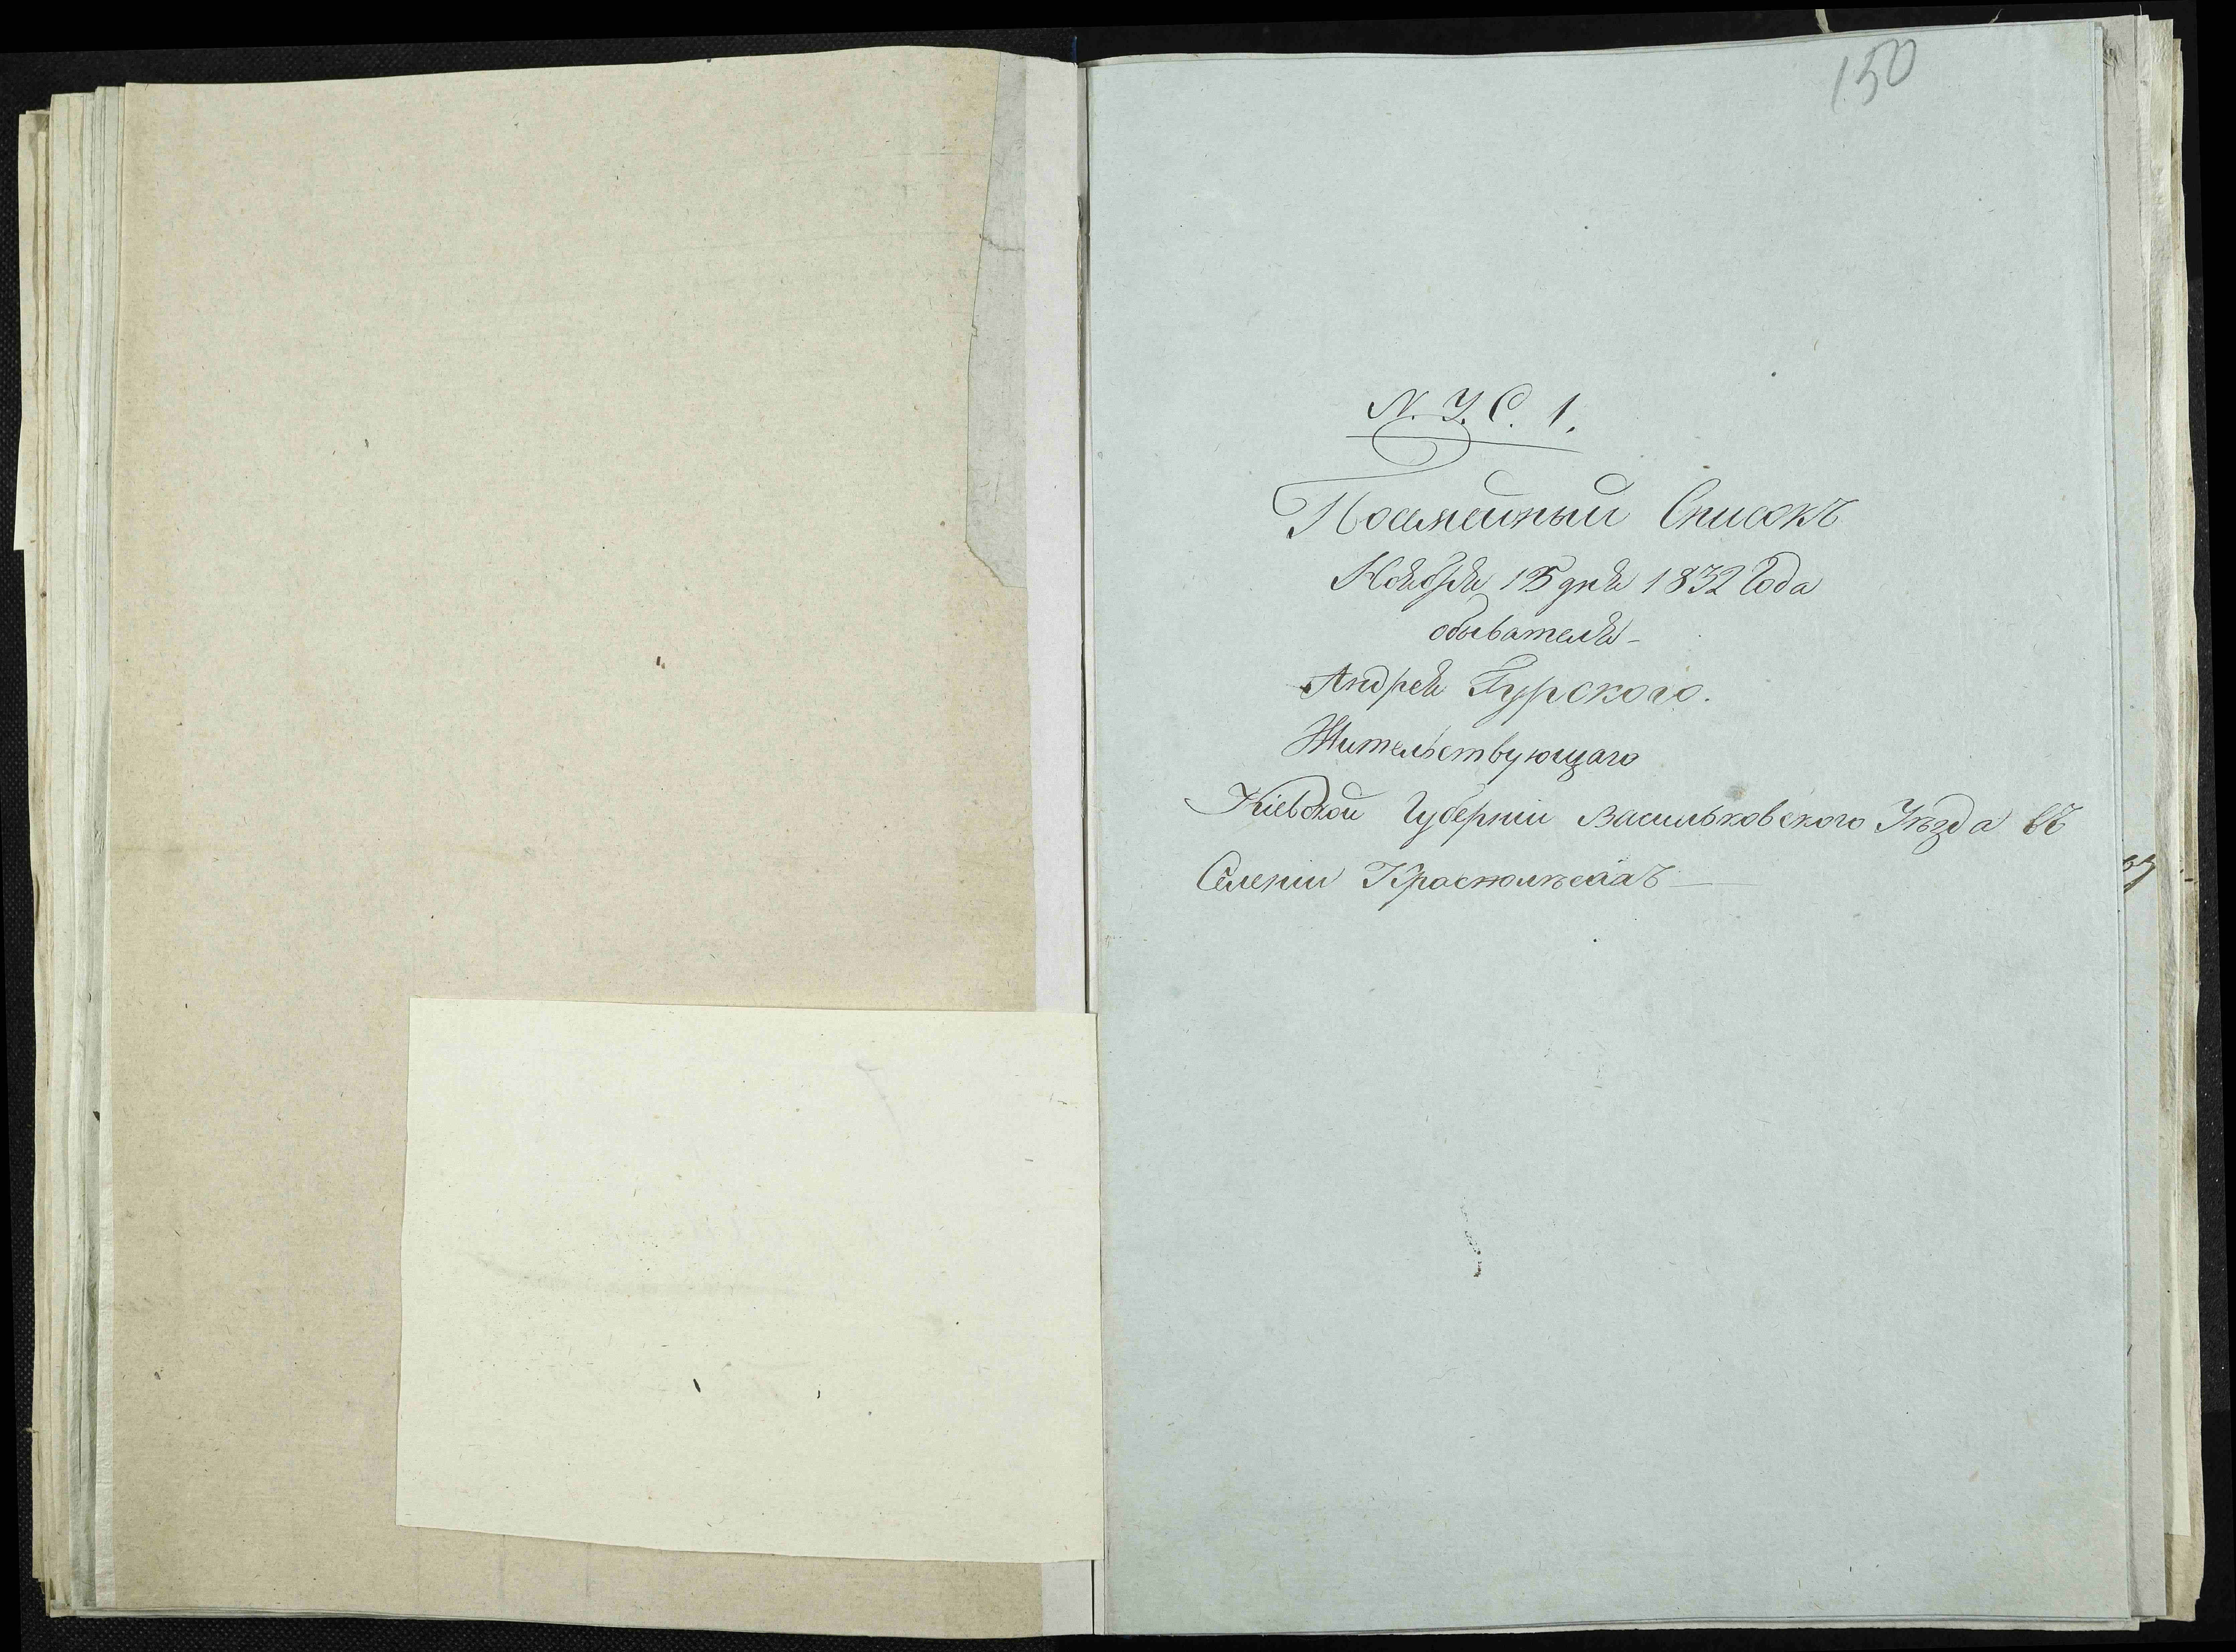 150
N. У. С. 1.
Посемейный Списокъ
Ноября 15 дня 1832 Года
обывателя -
Андрея Гурского.
Жительствующаго
Кіевской Губерніи Васильковского Уѣзда въ
Селеніи Краснолѣсахъ